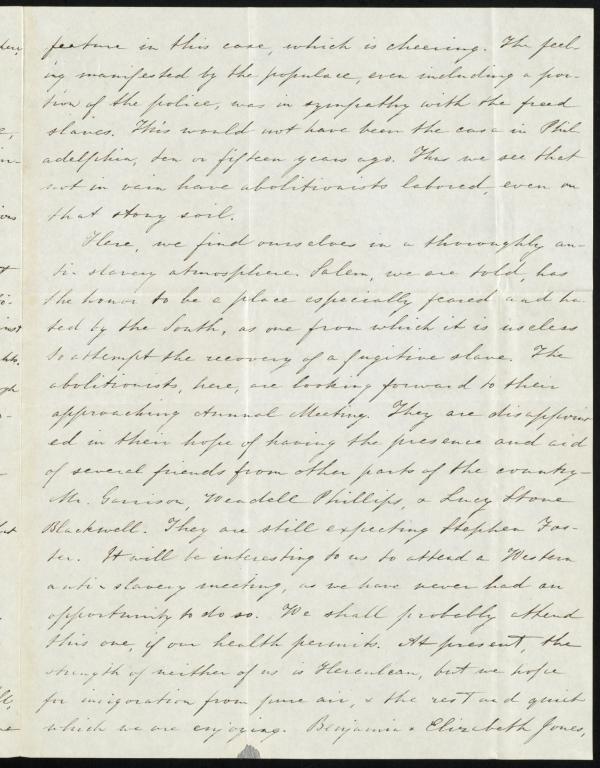 feature in this case, which is cheering. The feel-
ing manifested by the populace, even including a por-
tion of the police, was in sympathy with the freed
slaves. This would not have been the case in Phil
adelphia, ten or fifteen years ago. Thus we see that
not in vain have abolitionists labored, even on
that stony soil.
Here, we find ourselves in a thoroughly an-
ti-slavery atmosphere. Salem, we are told, has
the honor to be a place especially feared and ha-
ted by the South, as one from which it is useless
to attempt the recovery of a fugitive slave. The
abolitionists, here, are looking forward to their
approaching Annual Meeting. They are disappoint
ed in their hope of having the presence and aid
of several friends from other parts of the country-
Mr. Garrison, Wendell Phillips, & Lucy Stone
Blackwell. They are still expecting Stephen Fos-
ter. It will be interesting to us to attend a Western
anti-slavery meeting, as we have never had an
opportunity to do so. We shall probably attend
this one, if our health permits. At present, the
strength of neither of us is Herculean, but we hope
for invigoration from pure air, & the rest and quiet
which we are enjoying. Benjamin & Elizabeth Jones,